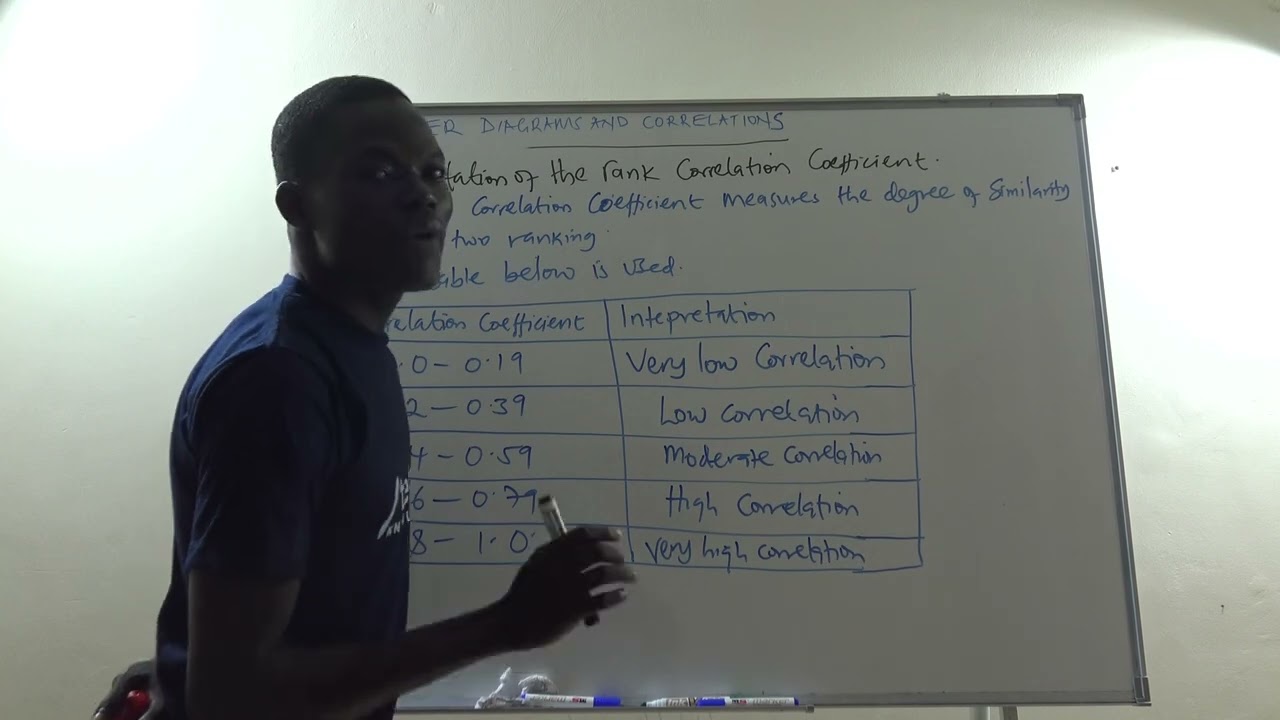 ER DIAGRAMS AND CORRELATIONS
tation of the rank Correlation Coefficient.
Correlation Coefficient measures the degree of Similarity
two ranking.
able below is Used.
relation Coefficient Intepretation
.0 - 0.19 Very low Correlation
2 - 0.39 Low correlation
4 - 0.59 Moderate Correlation
6 - 0.79 High Correlation
8 - 1.0 Very high correlation